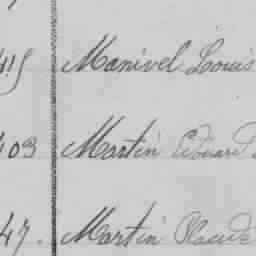 Manivel Louis
403 Martin Edouard
47. Martin Placide